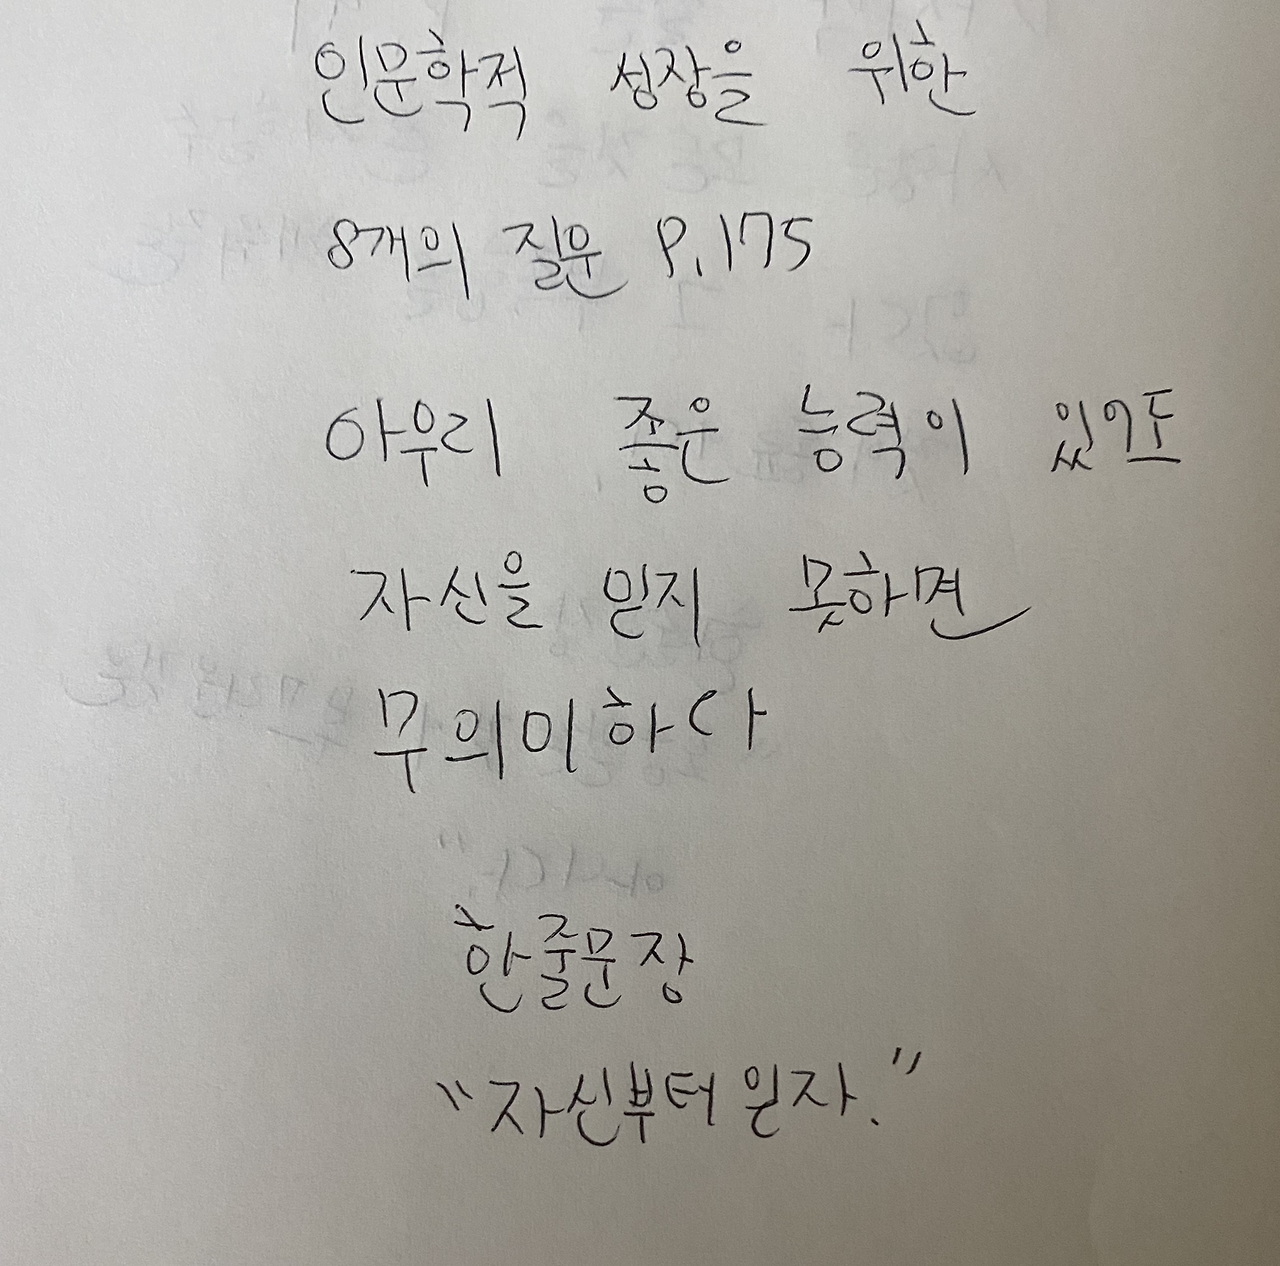 인문학적 성장을 위한
8개의 질문 P.175
아무리 좋은 능력이 있어도
자신을 믿지 못하면
무의미하다
한줄문장
"자신부터 믿자."